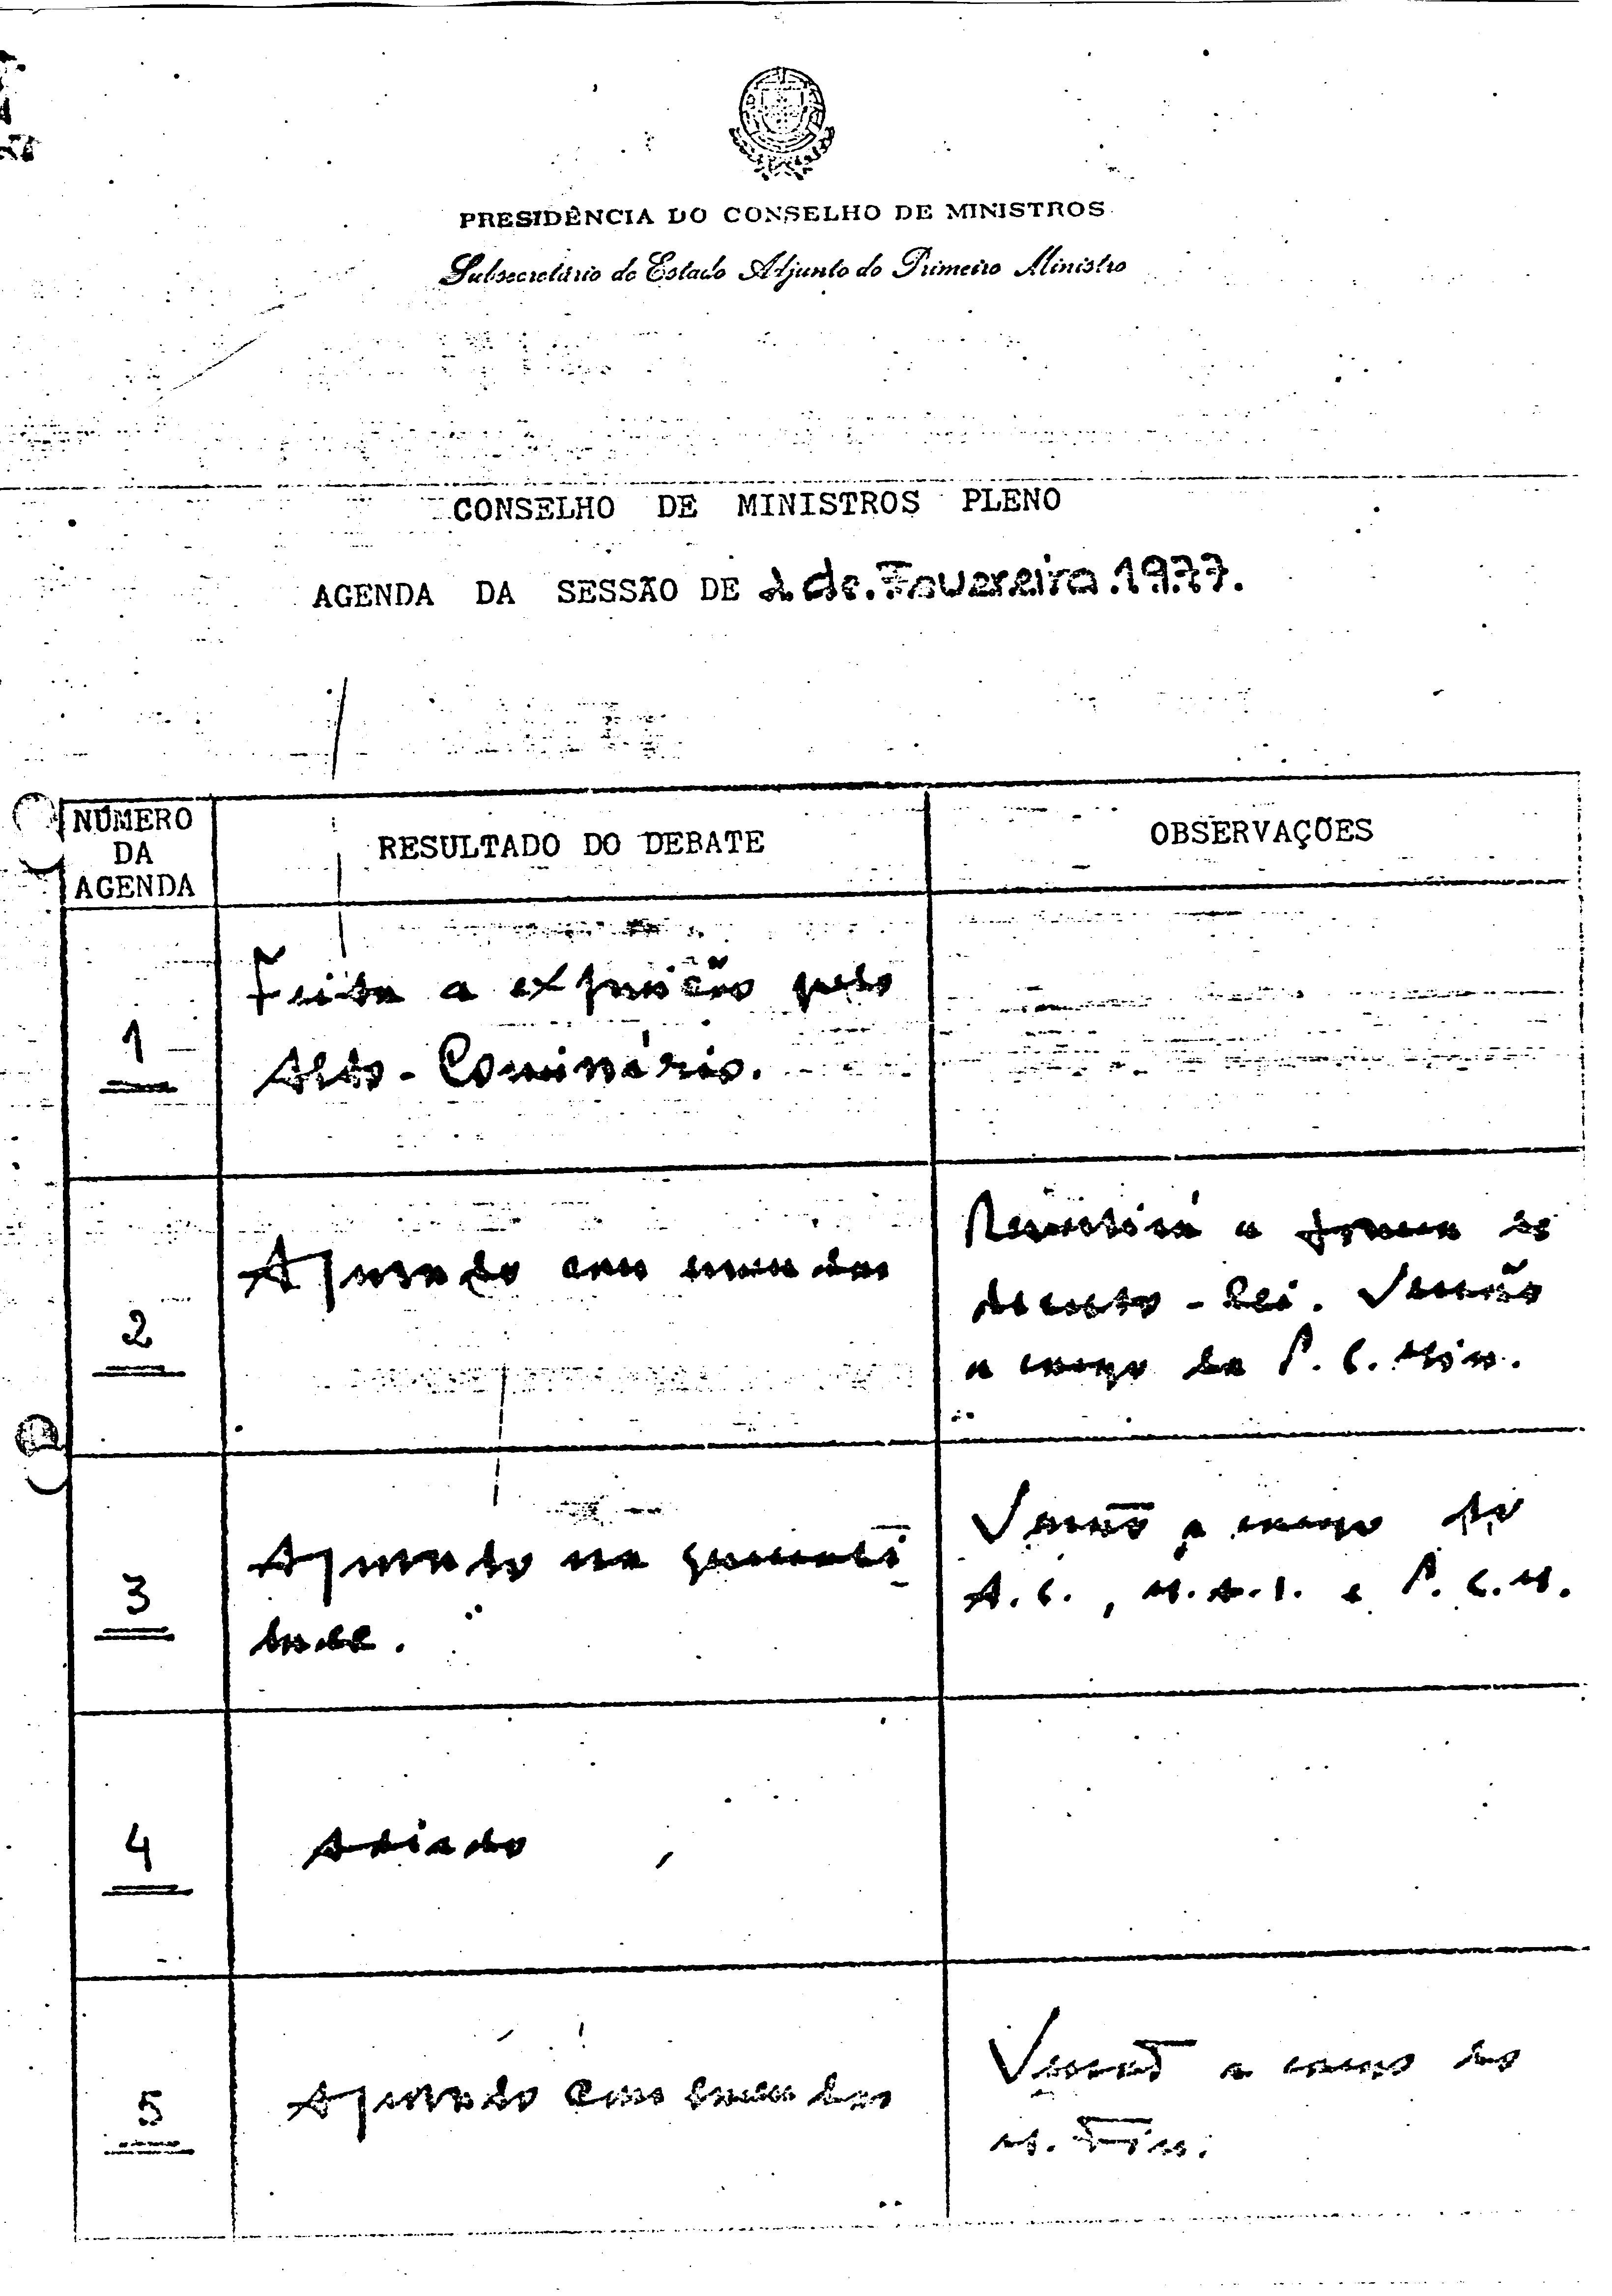 PRESIDÊNCIA DO CONSELHO DE MINISTROS
Subsecretário de Estado Adjunto do Primeiro Ministro
CONSELHO DE MINISTROS PLENO
AGENDA DA SESSÃO DE 2 de Fevereiro 1977.
NÚMERO
DA
AGENDA
RESULTADO DO DEBATE
OBSERVAÇÕES
1
Feita a exposição pelo
Alto-Comissário.
2
Aprovado com emendas
Revestirá a forma de
decreto-lei. Versão
a cargo da P. C. Min.
3
Aprovado na generali
dade.
Versão a cargo do
A.C., M.A.I. e P.C.M.
4
Adiado
5
Aprovado com emendas
Versão a cargo do
M. Fin.